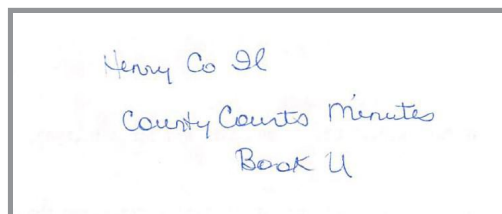 Henry Co Il
County Courts Minutes
Book U